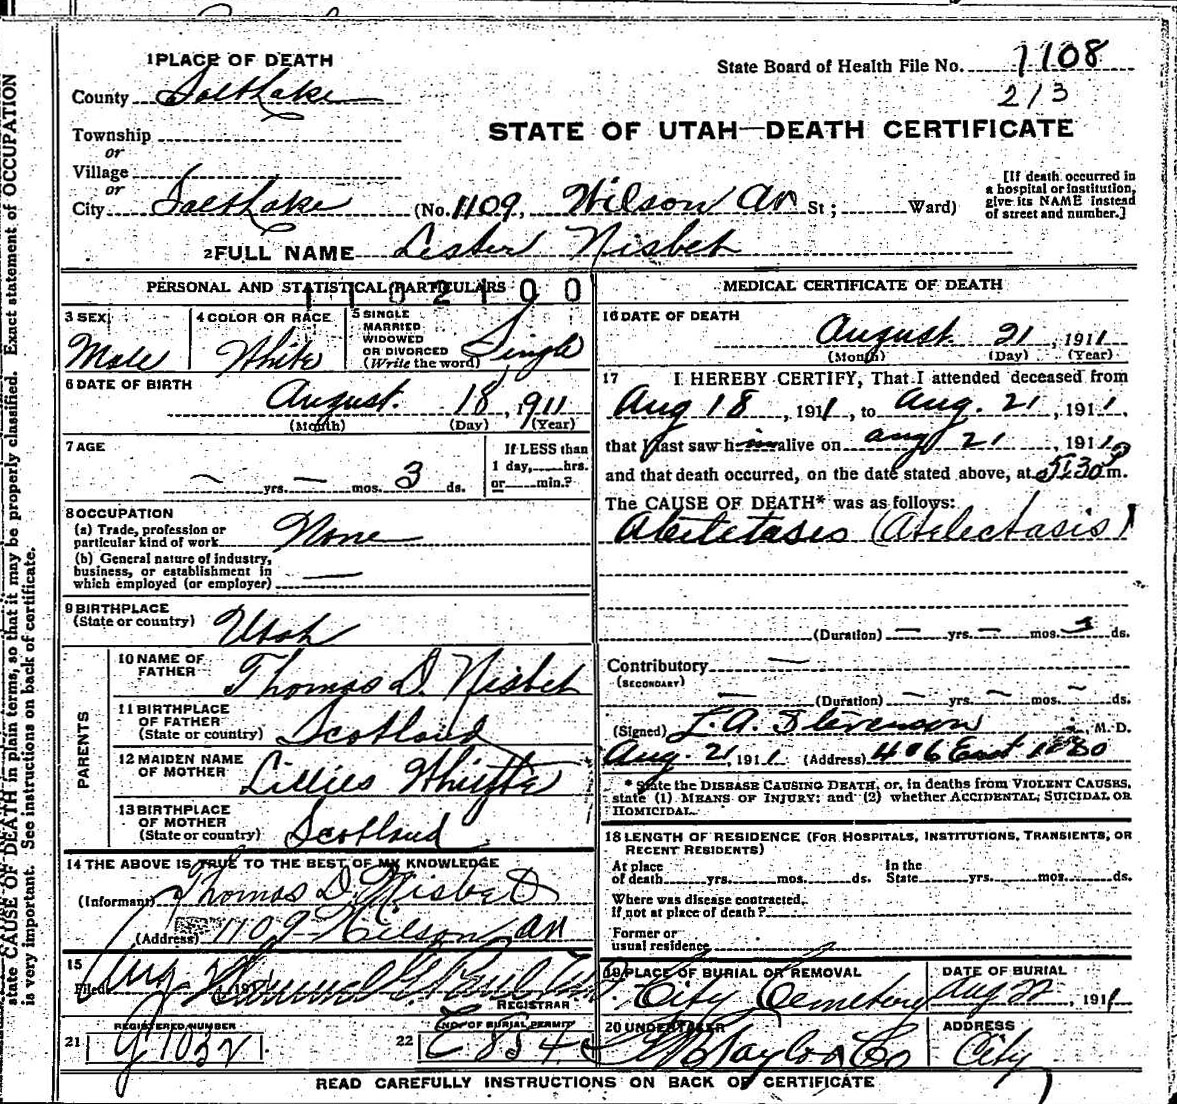 1 PLACE OF DEATH
State Board of Health File No. 1108
County Salt Lake
213
STATE OF UTAH—DEATH CERTIFICATE
Township
or
Village
or
City Salt Lake (No. 1109, Wilson Av St; Ward)
[If death occurred in
a hospital or institution,
give its NAME instead
of street and number.]
2 FULL NAME Lester Nisbet
PERSONAL AND STATISTICAL PARTICULARS
1102100
3 SEX
Male
4 COLOR OR RACE
White
5 SINGLE
MARRIED
WIDOWED
OR DIVORCED
(Write the word)
Single
6 DATE OF BIRTH
August 18, 1911
(Month) (Day) (Year)
7 AGE
— yrs. — mos. 3 ds.
If LESS than
1 day, hrs.
or min.?
8 OCCUPATION
(a) Trade, profession or
particular kind of work None
(b) General nature of industry,
business, or establishment in
which employed (or employer) —
9 BIRTHPLACE
(State or country) Utah
PARENTS
10 NAME OF
FATHER Thomas D. Nisbet
11 BIRTHPLACE
OF FATHER
(State or country) Scotland
12 MAIDEN NAME
OF MOTHER Lillies
13 BIRTHPLACE
OF MOTHER
(State or country) Scotland
14 THE ABOVE IS TRUE TO THE BEST OF MY KNOWLEDGE
(Informant) Thomas D. Nisbet
(Address) 1109 Wilson av
15
Filed Aug 191
REGISTRAR
REGISTERED NUMBER
21 1032
NO. OF BURIAL PERMIT
22 E 854
MEDICAL CERTIFICATE OF DEATH
16 DATE OF DEATH
August 21, 1911
(Month) (Day) (Year)
17 I HEREBY CERTIFY, That I attended deceased from
Aug 18, 1911, to Aug. 21, 1911,
that I last saw him alive on Aug 21, 1911,
and that death occurred, on the date stated above, at 5:30 P m.
The CAUSE OF DEATH* was as follows:
Atelectasis (Atelectasis)
(Duration) — yrs. — mos. 3 ds.
Contributory —
(SECONDARY)
— (Duration) — yrs. — mos. — ds.
(Signed) L. A. Stevenson M. D.
Aug. 21, 1911 (Address) 406 East
* State the DISEASE CAUSING DEATH, or, in deaths from VIOLENT CAUSES,
state (1) MEANS OF INJURY; and (2) whether ACCIDENTAL, SUICIDAL OR
HOMICIDAL.
18 LENGTH OF RESIDENCE (FOR HOSPITALS, INSTITUTIONS, TRANSIENTS, OR
RECENT RESIDENTS)
At place
of death yrs. mos. ds.
In the
State yrs. mos. ds.
Where was disease contracted,
if not at place of death?
Former or
usual residence
19 PLACE OF BURIAL OR REMOVAL
City Cemetery
DATE OF BURIAL
Aug 22, 1911
20 UNDERTAKER
Taylor Co
ADDRESS
City
READ CAREFULLY INSTRUCTIONS ON BACK OF CERTIFICATE
state CAUSE OF DEATH in plain terms, so that it may be properly classified. Exact statement of OCCUPATION
is very important. See instructions on back of certificate.